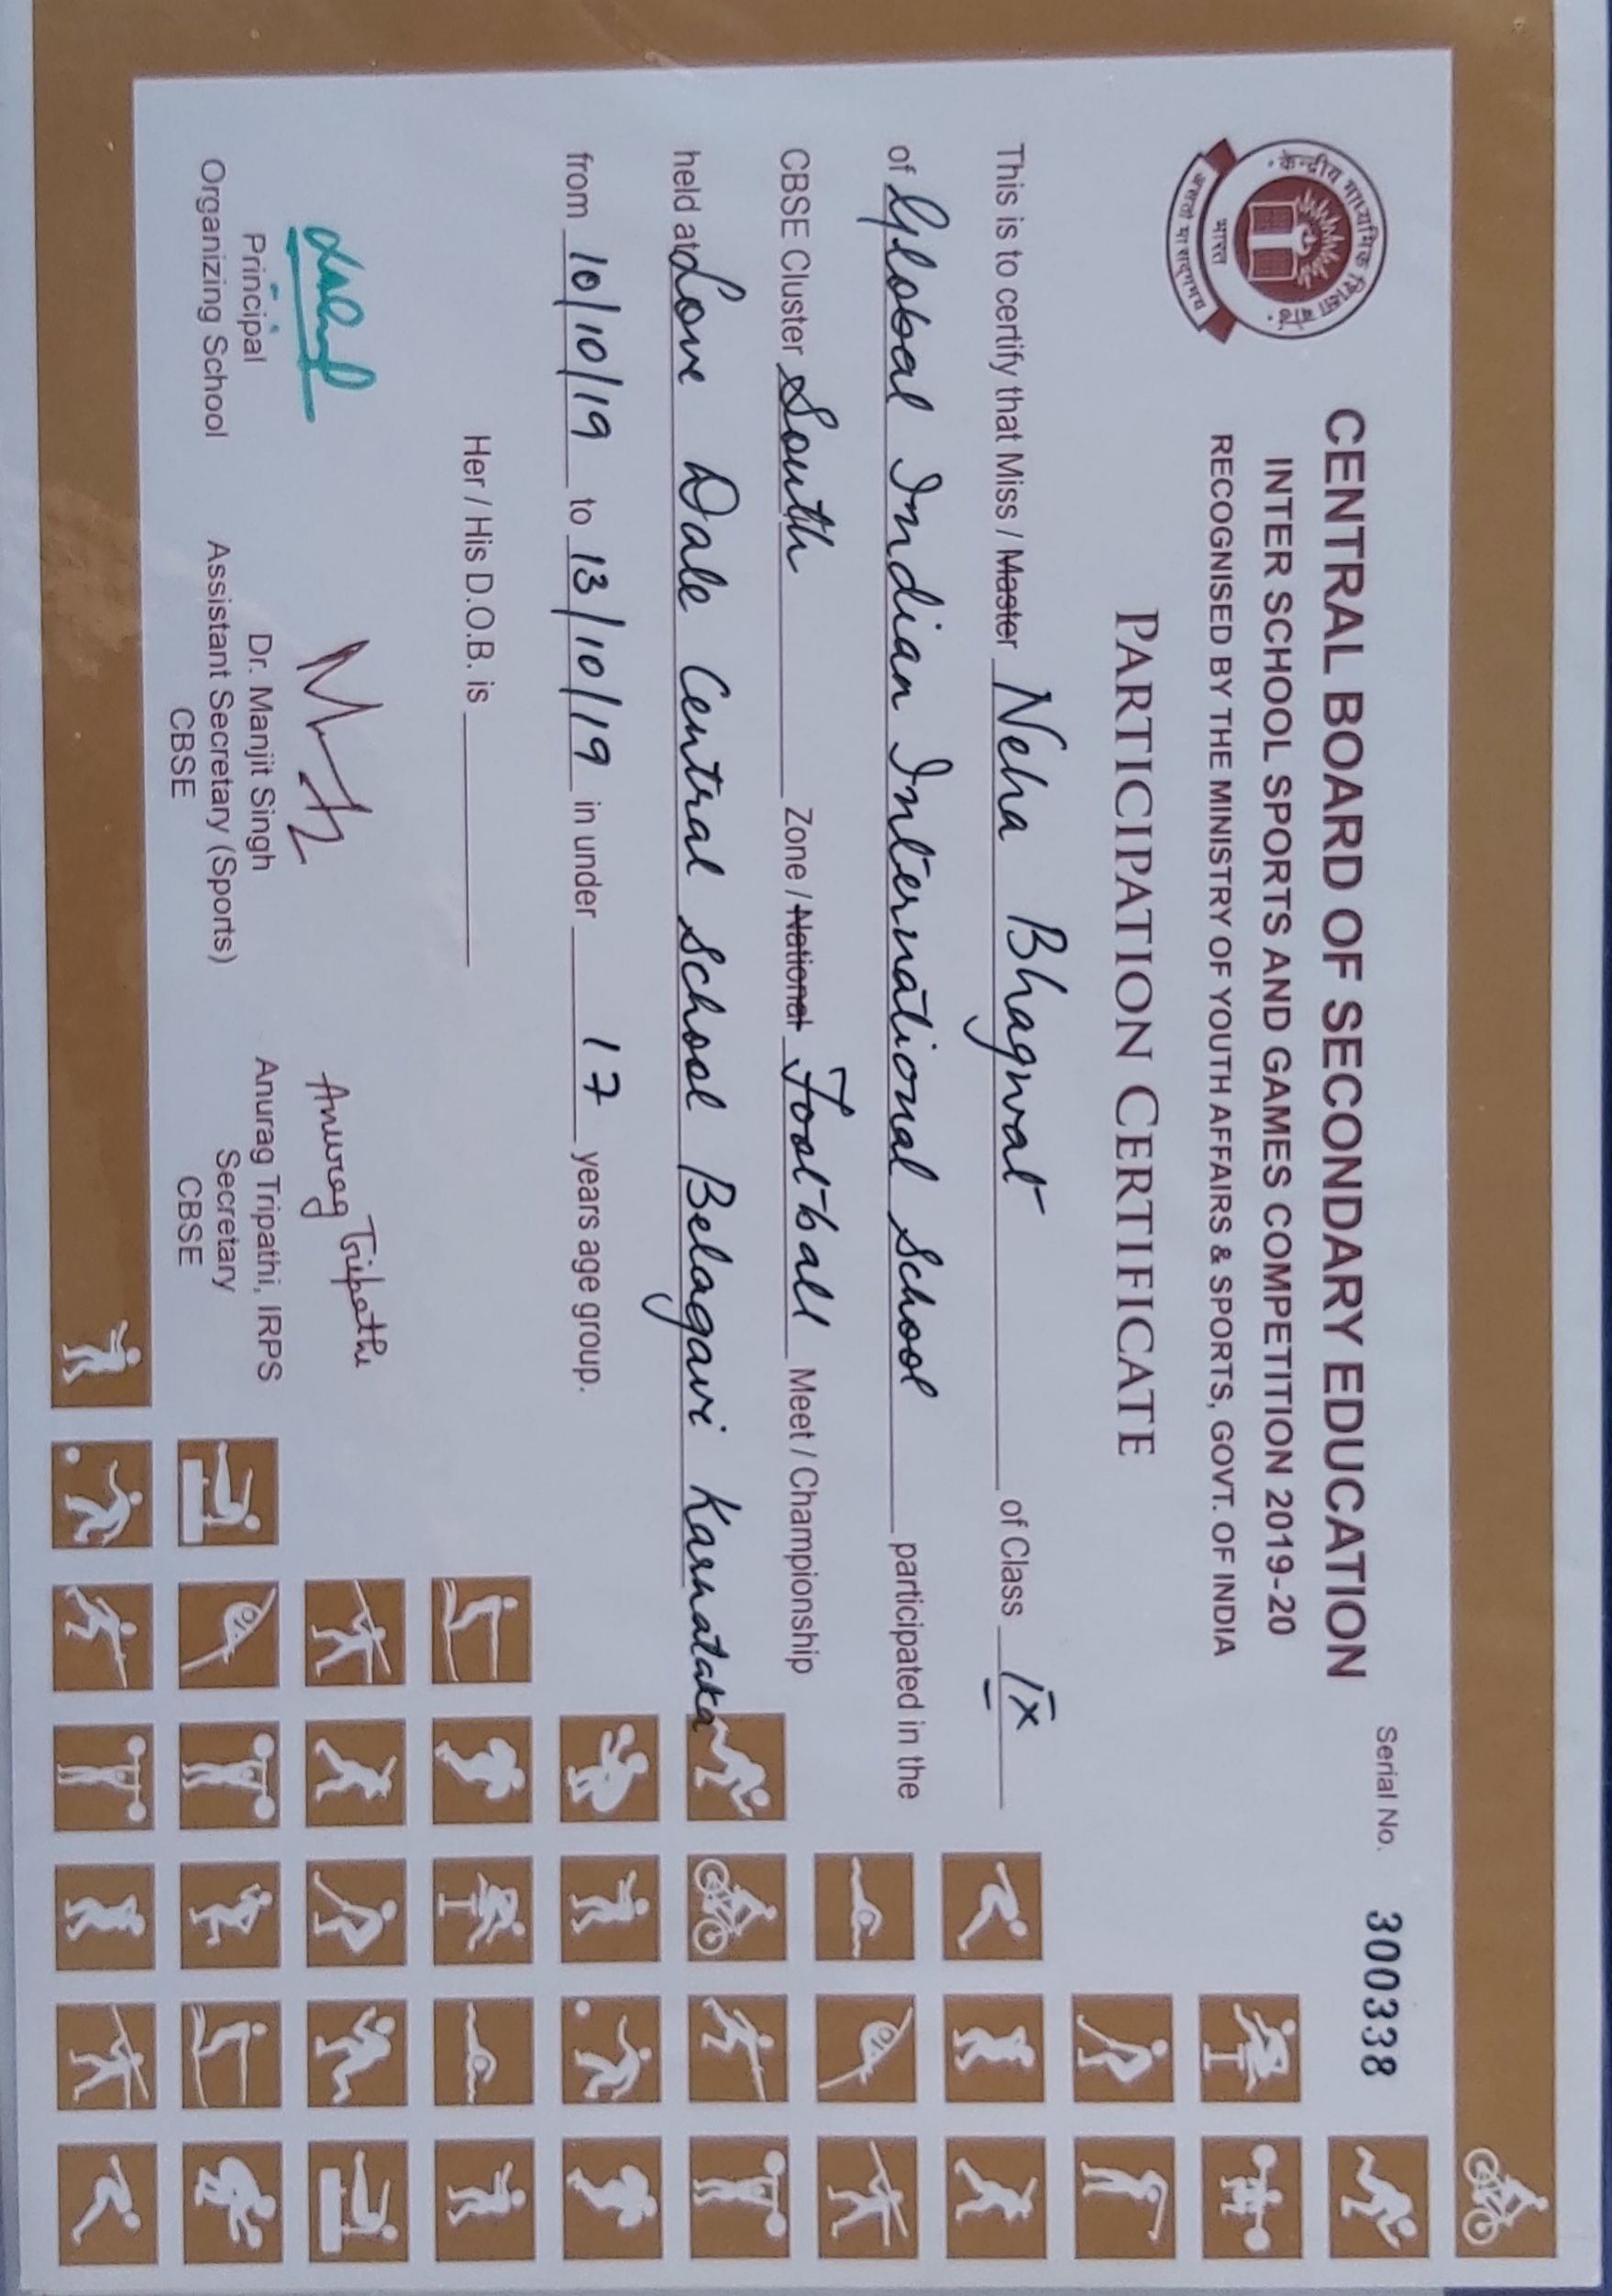 Serial No. 300338
केन्द्रीय माध्यमिक शिक्षा बोर्ड
भारत
असतो मा सद्गमय
CENTRAL BOARD OF SECONDARY EDUCATION
INTER SCHOOL SPORTS AND GAMES COMPETITION 2019-20
RECOGNISED BY THE MINISTRY OF YOUTH AFFAIRS & SPORTS, GOVT. OF INDIA
PARTICIPATION CERTIFICATE
This is to certify that Miss / Master Neha Bhagwat of Class IX
of Global Indian International School participated in the
CBSE Cluster South Zone / National Football Meet / Championship
held at Love Dale Central School Belagavi Karnataka
from 10/10/19 to 13/10/19 in under 17 years age group.
Her / His D.O.B. is
Anurag Tripathi
Principal
Organizing School
Dr. Manjit Singh
Assistant Secretary (Sports)
CBSE
Anurag Tripathi, IRPS
Secretary
CBSE